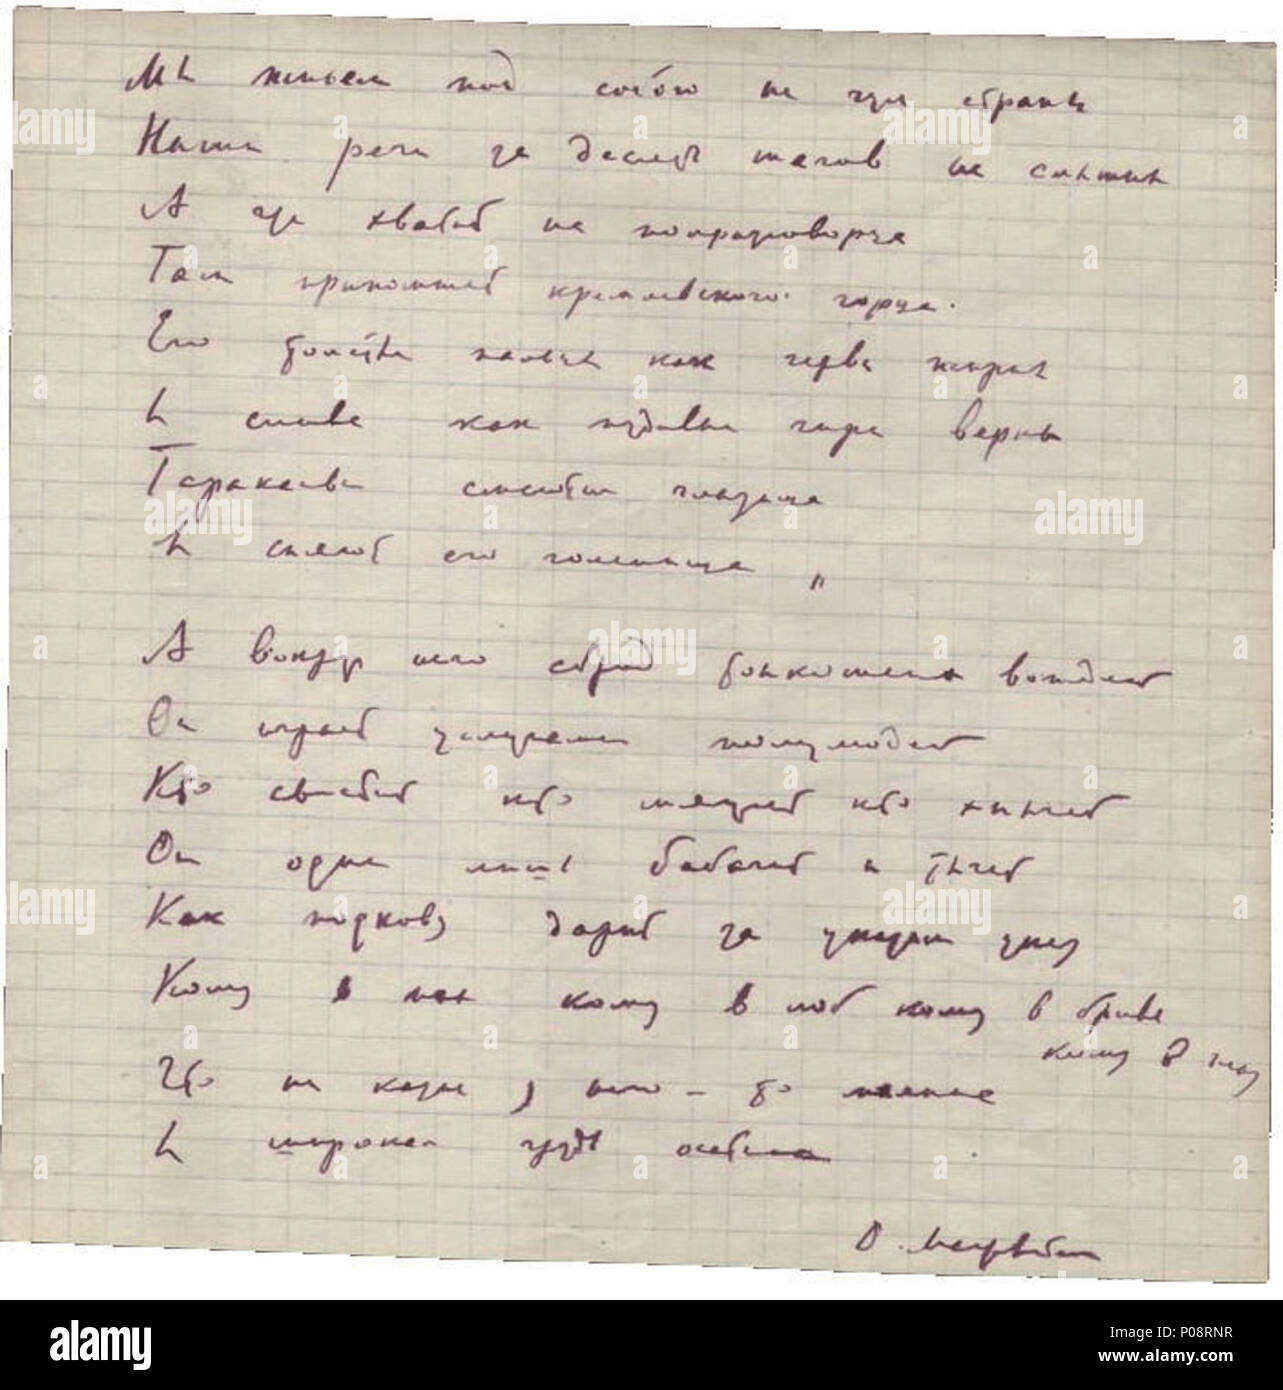 Мы живем под собою не чуя страны
Наши речи за десять шагов не слышны
А где хватит на полразговорца
Там припомнят кремлевского горца.
Его толстые пальцы как черви жирны
И слова как пудовые гири верны
Тараканьи смеются глазища
И сияют его голенища
А вокруг него сброд тонкошеих вождей
Он играет услугами полулюдей
Кто свистит кто мяучит кто хнычет
Он один лишь бабачит и тычет
Как подкову дарит за указом указ
Кому в пах кому в лоб кому в бровь
кому в глаз
Что ни казнь у него - то малина
И широкая грудь осетина
О. Мандельштам
alamy
Image ID: P08RNR
www.alamy.com